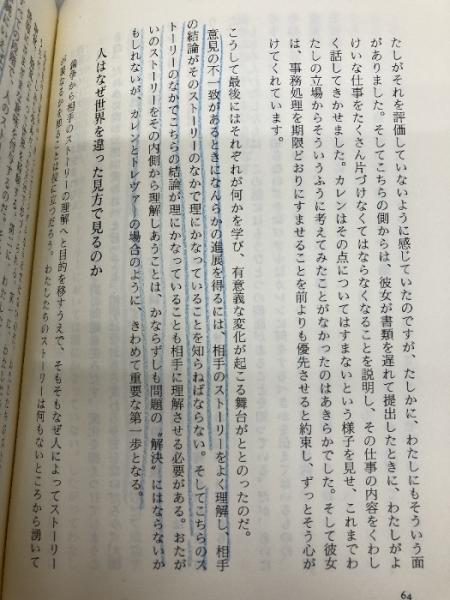 たしがそれを評価していないように感じていたのですが、たしかに、わたしにもそういう面
がありました。そしてこちらの側からは、彼女が書類を遅れて提出したときに、わたしがよ
けいな仕事をたくさん片づけなくてはならなくなることを説明し、その仕事の内容をくわし
く話してきかせました。カレンはその点についてはすまないという様子を見せ、これまでわ
たしの立場からそういうふうに考えてみたことがなかったのはあきらかでした。そして彼女
は、事務処理を期限どおりにすませることを前よりも優先させると約束し、ずっとそう心が
けてくれています。
こうして最後にはそれぞれが何かを学び、有意義な変化が起こる舞台がととのったのだ。
意見の不一致があるときになんらかの進展を得るには、相手のストーリーをよく理解し、相手
の結論がそのストーリーのなかで理にかなっていることを知らねばならない。そしてこちらのス
トーリーのなかでこちらの結論が理にかなっていることも相手に理解させる必要がある。おたが
いのストーリーをその内側から理解しあうことは、かならずしも問題の〝解決〟にはならないか
もしれないが、カレンとトレヴァーの場合のように、きわめて重要な第一歩となる。
人はなぜ世界を違った見方で見るのか
論争から相手のストーリーの理解へと目的を移すうえで、そもそもなぜ人によってストーリー
が異なるかを知ることは役に立つだろう。わたしたちのストーリーは何もないところから湧いて
64